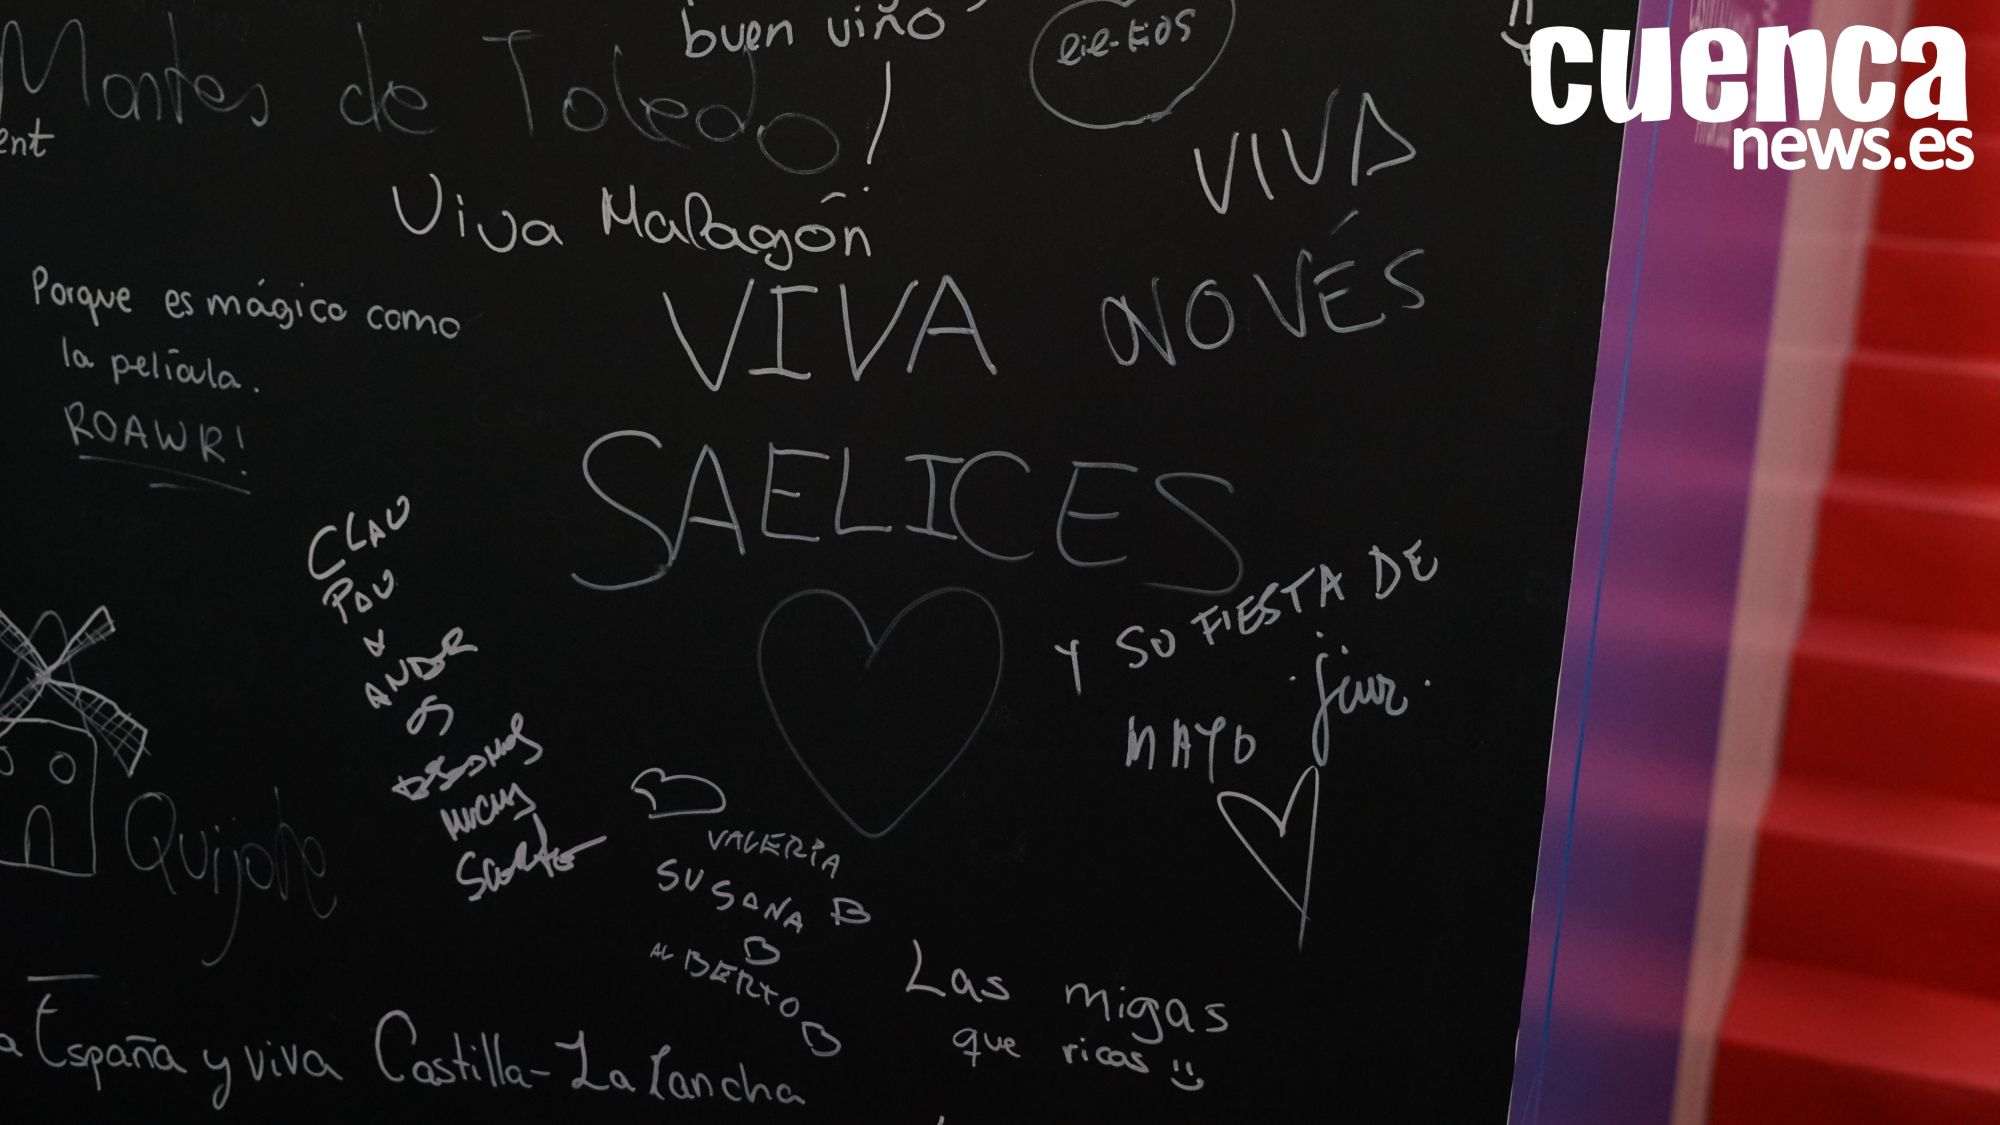 buen viño
Montes de Toledo!
ent
cuenca
news.es
VIVA
NOVÉS
Viva Malagón
Porque es mágico como
la película.
ROAWR!
VIVA
SAELICES
Y SU FIESTA DE
MAYO
CLAU
PAU
Quijote
VALERIA
SUSANA
ALBERTO
Las migas
que ricas
a España y viva Castilla-La Mancha